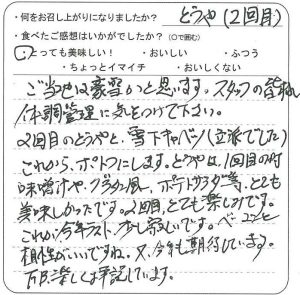 ・何をお召し上がりになりましたか？ とうや（2回目）
・食べたご感想はいかがでしたか？（○で囲む）
・とっても美味しい！ ・おいしい ・ふつう
・ちょっとイマイチ ・おいしくない
ご当地は豪雪かと思います。スタッフの皆様
体調管理に気をつけて下さい。
2回目のとうやと、雪下キャベツ（立派でした）
これから、ポトフにします。とうやは、1回目の時
味噌汁や、グラタン風、ポテトサラダ等、とても
美味しかったです。2回目、とても楽しみです。
これが今年ラスト、少し寂しいです。ベーコンと
相性がいいですね。又、今年も期待しています。